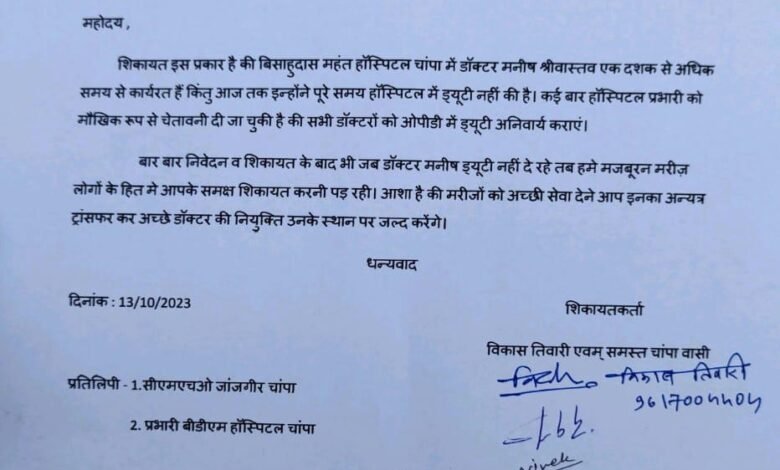 महोदय,
शिकायत इस प्रकार है की बिसाहुदास महंत हॉस्पिटल चांपा में डॉक्टर मनीष श्रीवास्तव एक दशक से अधिक
समय से कार्यरत हैं किंतु आज तक इन्होंने पूरे समय हॉस्पिटल में ड्यूटी नहीं की है। कई बार हॉस्पिटल प्रभारी को
मौखिक रूप से चेतावनी दी जा चुकी है की सभी डॉक्टरों को ओपीडी में ड्यूटी अनिवार्य कराएं।
बार बार निवेदन व शिकायत के बाद भी जब डॉक्टर मनीष ड्यूटी नहीं दे रहे तब हमे मजबूरन मरीज़
लोगों के हित मे आपके समक्ष शिकायत करनी पड़ रही। आशा है की मरीजों को अच्छी सेवा देने आप इनका अन्यत्र
ट्रांसफर कर अच्छे डॉक्टर की नियुक्ति उनके स्थान पर जल्द करेंगे।
धन्यवाद
दिनांक : 13/10/2023
शिकायतकर्ता
विकास तिवारी एवम् समस्त चांपा वासी
तिवारी
प्रतिलिपी - 1.सीएमएचओ जांजगीर चांपा
2. प्रभारी बीडीएम हॉस्पिटल चांपा